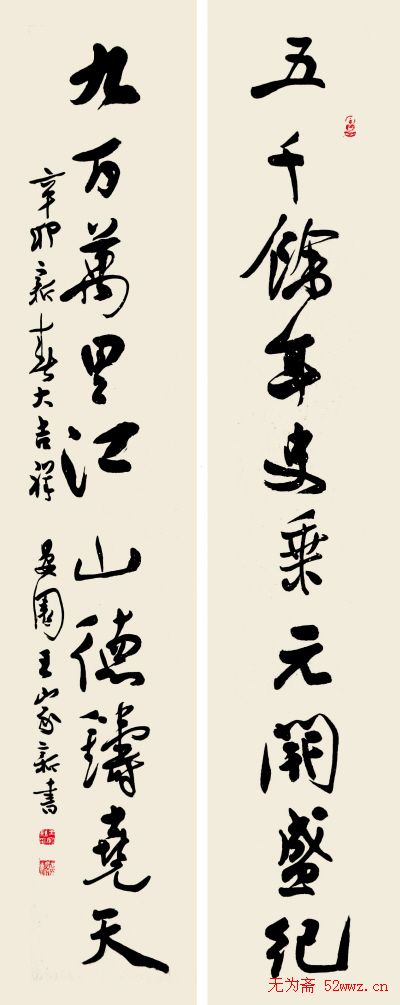 五千餘年史乘元開盛紀
九百萬里江山德鑄堯天
辛卯新春大吉祥 園王家新書
无为斋 52wwz.cn